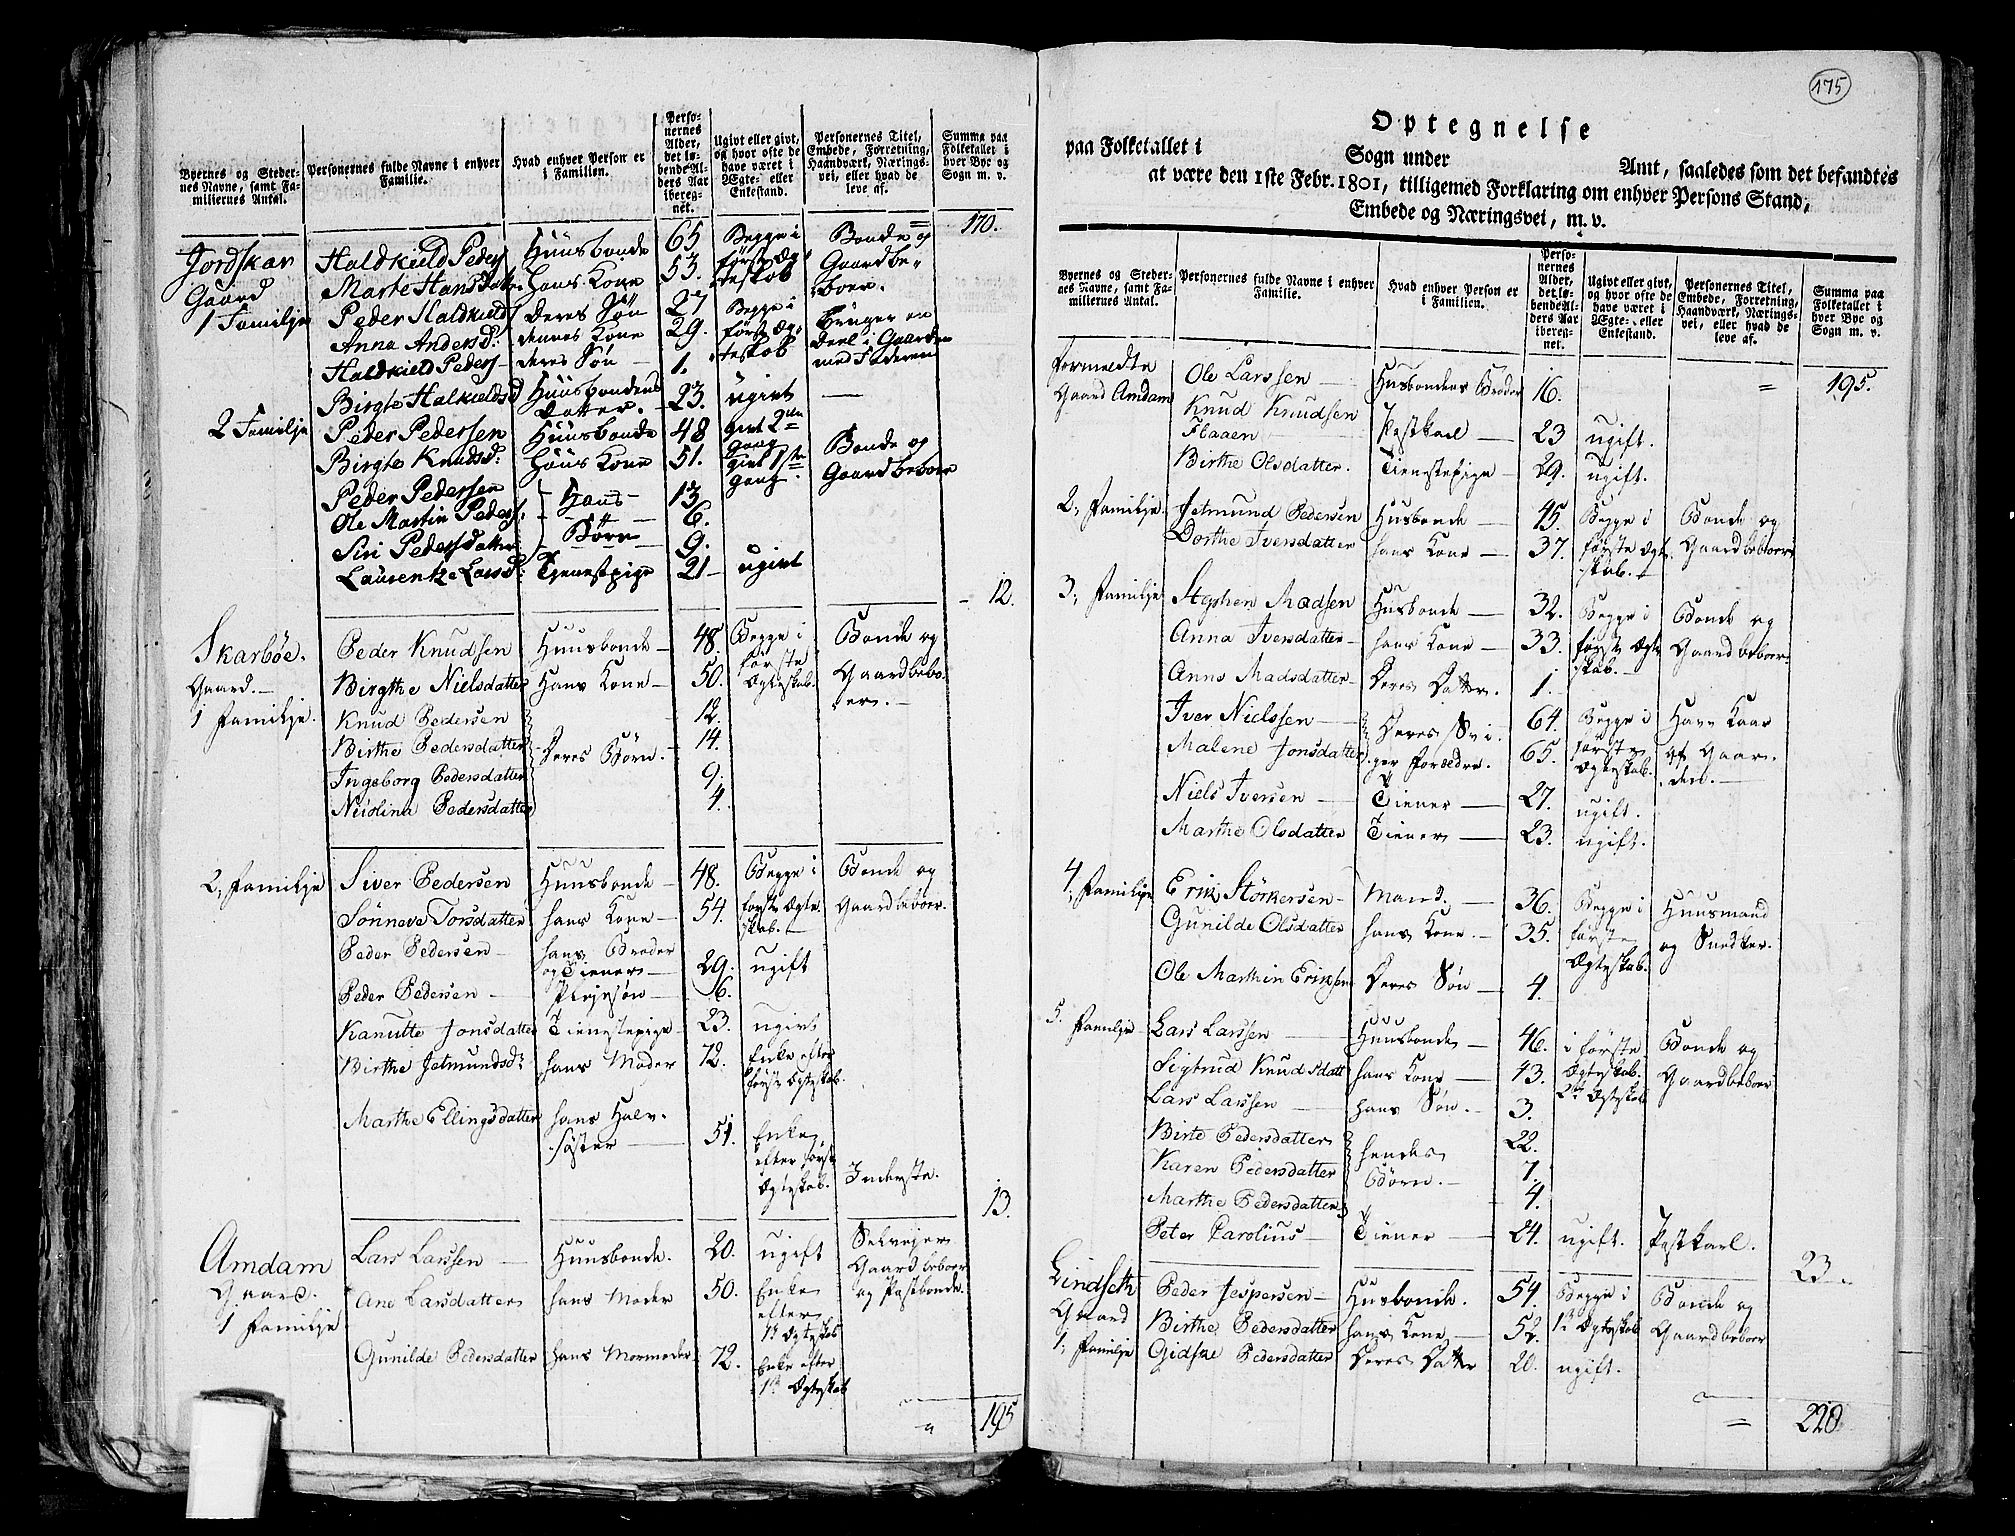 Byernes og Stedernes Navne, samt Familiernes Antal.
Personernes fulde Navne i enhver Familie.
Hvad enhver Person er i Familien.
Personernes Alder, det løbende Alders Aar iberegnet.
Ugivt eller givt, og hvor ofte de have været i Ægte- eller Enkestand.
Personernes Titel, Embede, Forretning, Haandværk, Næringsvei, eller hvad de leve af.
Summa paa Folketallet i hver Bye og Sogn m. v.
170.
Jordskar Haldkield Peders Huusbonde 65 Begge i Bonde og
Gaard Marte Hansdatr. hans Kone 53. første Æg= Gaardbe=
1 Familje Peder Haldkields deres Søn 27 teskab boer.
Anna Andersd: dennes Kone 29. Begge i første Ægteskab bruger en Deel i Gaarden
Haldkield Peders deres Søn 1. med Faderen
Birgte Halkieldsd Huusbondens Datter. 23. ugivt
2 Familje Peder Pedersen Huusbonde 48 givt 2den Gang Bonde og
Birgte Knudsd: hans Kone 51. givt 1ste gang. Gaardbeboer
Peder Pedersen Hans 13
Ole Martin Peders. 6.
Siri Pedersdatter Børn 9.
Laurentze Larsd: Tjenestpige 21 ugivt
12.
Skarbøe. Peder Knudsen Huusbonde 48. Begge i Bonde og
Gaard. Birgthe Nielsdatter Hans Kone 50. første Ægteskab. Gaardbeboer.
1 Familje. Knud Pedersen 12.
Birthe Pedersdatter Deres Børn. 14.
Ingeborg Pedersdatter 9.
Nicolina Pedersdatter 4.
2, Familje Siver Pedersen Huusbonde 48. Begge i Bonde og
Sönneva Torsdatter hans Kone 54. første Ægteskab. Gaardbeboer.
Peder Pedersen hans Broder og Tiener 29. ugift
Peder Pedersen Plejesøn 6.
Kanutte Jonsdatter Tienestepige 23. ugivt
Birthe Jetmundsdr hans Moder 72. Enke efter første Ægteskab.
Marthe Ellingsdatter hans Halvsøster 51. Enke efter første Ægteskab. Inderste.
13.
Amdam Lars Larssen Huusbonde. 20. ugift Selvejer Gaardbeboer og Postbonde.
Gaard. Ane Larsdatter hans Moder 50. Enke efter 1st Ægteskab
1 Familje
Gunilde Pedersdatter hans Mormoder 72. Enke efter 1st Ægteskab
195
175
Optegnelse
paa Folketallet i Sogn under Amt, saaledes som det befandtes
at være den 1ste Febr. 1801, tilligemed Forklaring om enhver Persons Stand,
Embede og Næringsvei, m. v.
Byernes og Stedernes Navne, samt Familiernes Antal.
Personernes fulde Navne i enhver Familie.
Hvad enhver Person er i Familien.
Personernes Alder, det løbende Alders Aar iberegnet.
Ugivt eller givt, og hvor ofte de have været i Ægte- eller Enkestand.
Personernes Titel, Embede, Forretning, Haandværk, Næringsvei, eller hvad de leve af.
Summa paa Folketallet i hver Bye og Sogn m. v.
formeldte Ole Larssen Husbondens Broder 16. = 195.
Gaard Amdam Knud Knudsen Flaaen Postkarl 23 ugift.
Birthe Olsdatter. Tienestepige 29. ugift.
2, Familje. Jetmund Pedersen Husbonde 45. Begge i Bonde og
Dorthe Iversdatter hans Kone 37. første Ægteskab. Gaardbeboer
3, Familje Stephen Madsen Husbonde 32. Begge i Bonde og
Anna Iversdatter hans Kone 33. første Ægteskab. Gaardbeboer
Anne Madsdatter Deres Datter. 1.
Iver Nielssen Deres Svi 64. Begge i Have Kaar
Malene Jonsdatter gerforældre. 65. første Ægteskab. af Gaarden.
Niels Iversen Tiener 27. ugift.
Marthe Olsdatter Tiener 23. ugift.
4, Familje Erik Störkersen Mand. 36. Begge i Huusmand
Gunilde Olsdatter hans Kone. 35. første Ægteskab. og Snedker.
Ole Marthin Eriksen Deres Søn 4.
5. Familje Lars Larssen Huusbonde 46. i første Ægteskab. Bonde og
Sigtrud Knudsdatt hans Kone 43. 2det Ægteskab Gaardbeboer
Lars Larssen hans Søn. 3.
Birte Pedersdatter hendes 22.
Karen Pedersdatter Børn. 7.
Marthe Pedersdatter 4.
Peter Carolius Tiener 24. ugift. Postkarl.
23.
Lindseth Peder Jespersen Husbonde. 54. Begge i Bonde og
Gaard Birthe Pedersdatter hans Kone 52. 1st Ægteskab Gaardbeboer
1, Familje Gidske Pedersdatter Deres Datter 20. ugift.
= 220